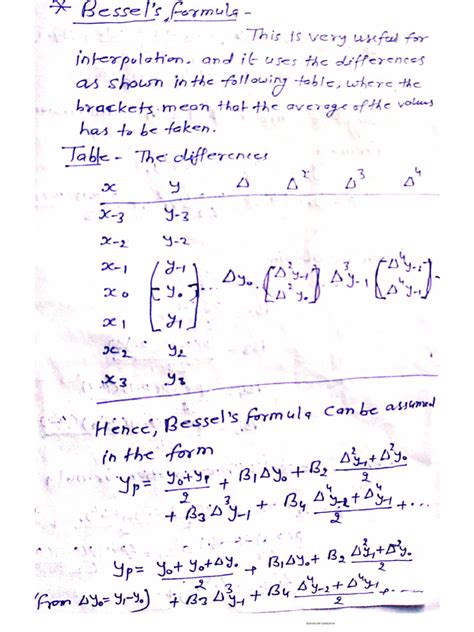 * Bessel's formula -
This is very useful for
interpolation. and it uses the differences
as shown in the following table, where the
brackets mean that the average of the values
has to be taken.
Table - The differences
x y Δ Δ² Δ³ Δ⁴
x-3 y-3
x-2 y-2
x-1 y-1
x0 y0 Δy0 (Δ²y-1 Δ²y0) Δ³y-1 (Δ⁴y-2 Δ⁴y-1)
x1 y1
x2 y2
x3 y3
Hence, Bessel's formula can be assumed
in the form
yp = (y0+yp)/2 + B1Δy0 + B2 (Δ²y-1+Δ²y0)/2
+ B3Δ³y-1 + B4 (Δ⁴y-2+Δ⁴y-1)/2 + ...
yp = (y0+y0+Δy0)/2 + B1Δy0 + B2 (Δ²y-1+Δ²y0)/2
(from Δy0 = y1-y0) + B3Δ³y-1 + B4 (Δ⁴y-2+Δ⁴y-1)/2 + ...